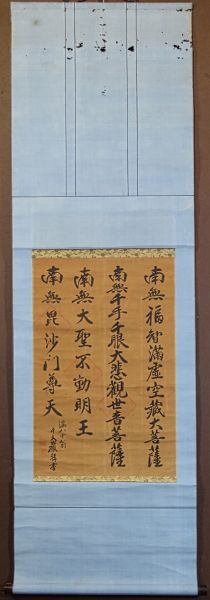 南無福智滿虚空藏大菩薩
南無千手千眼大悲觀世音菩薩
南無大聖不動明王
南無毘沙門尊天